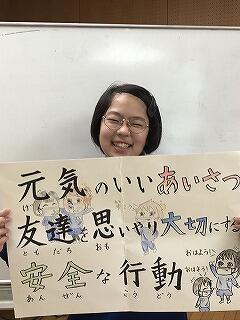 元気のいいあいさつ
げんき
友達を思いやり大切にする
ともだち おも
おはよう!
おはよう!
安全な行動
あんぜん こうどう